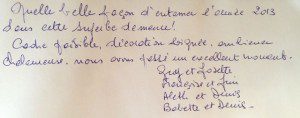 Quelle belle façon d'entamer l'année 2013
dans cette superbe demeure!
Cadre paisible, décoration soignée, ambiance
chaleureuse, nous avons passé un excellent moment.
et Josette
Françoise et
Aleth et Denis
Babette et Denis.